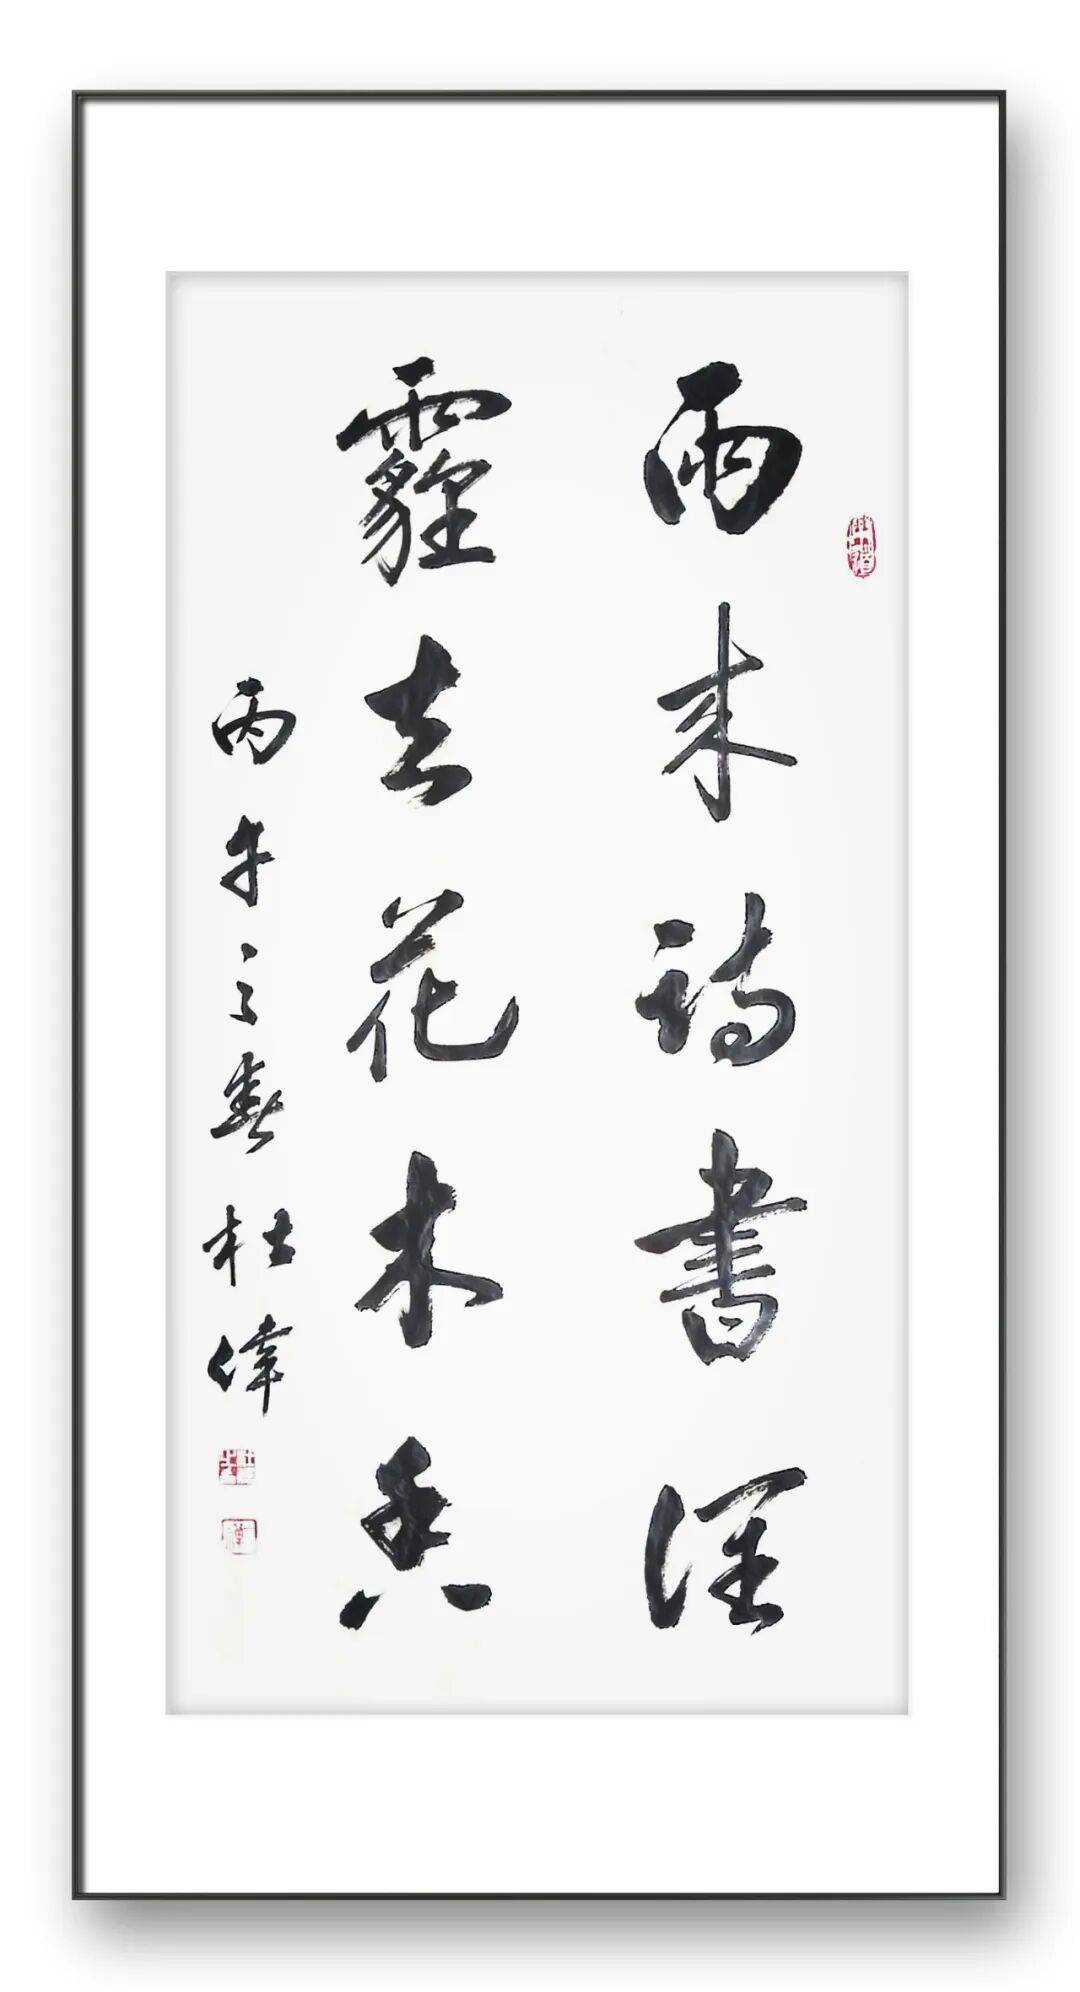 雨来詩書潤
霾去花木香
丙午之春杜偉